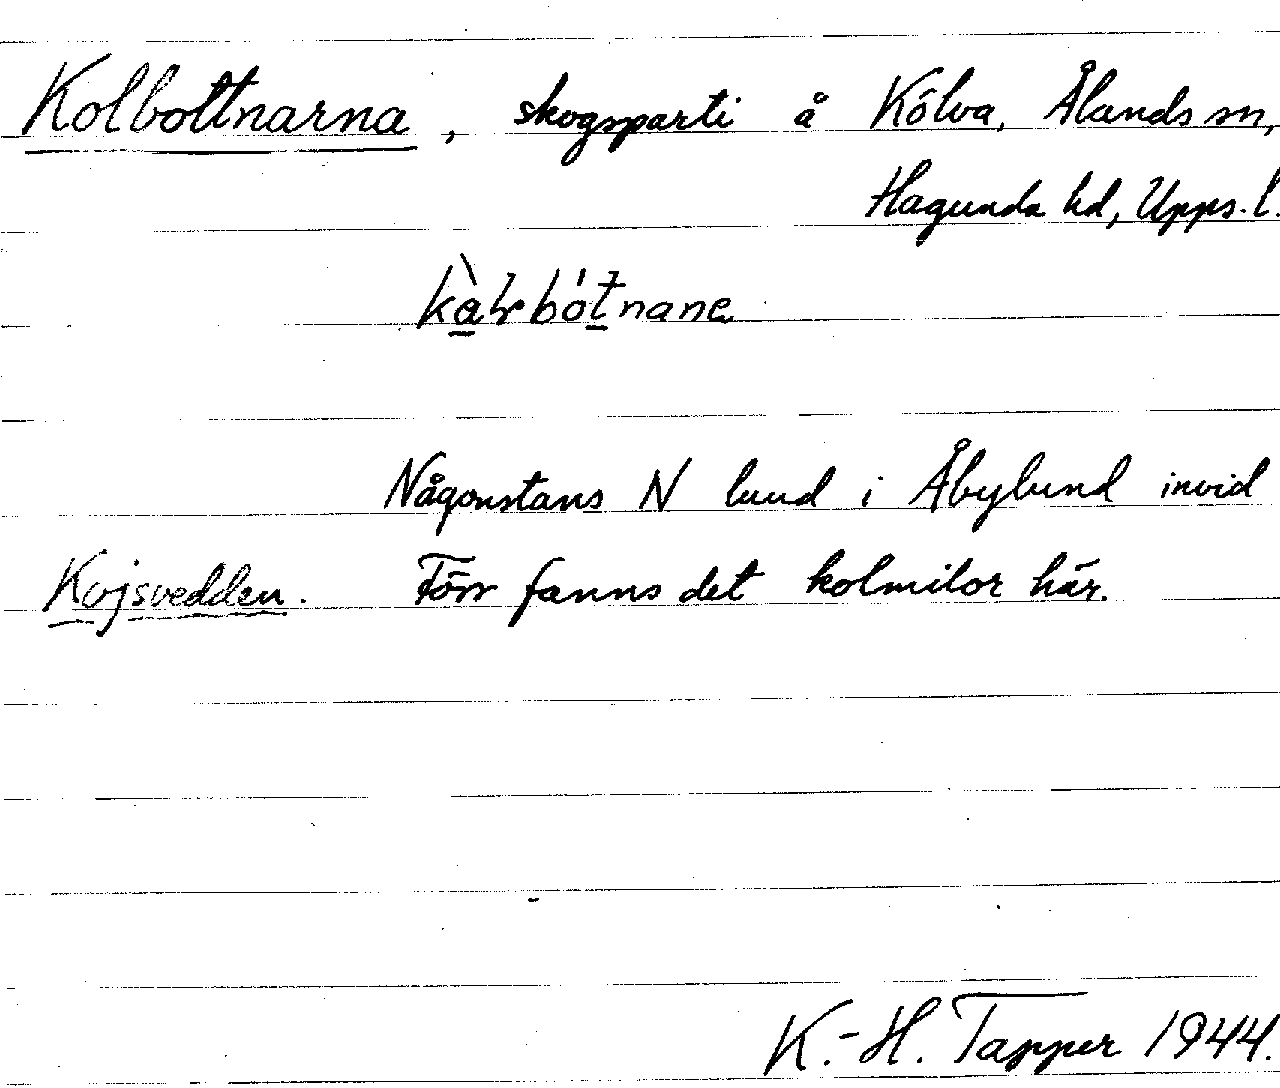 Kolbottnarna, skogsparti å Kölva, Ålands sn,
Hagunda hd, Upps. l.
Någonstans N lund i Åbylund invid
Kojsvedden. Förr fanns det kolmilor här.
K.-H. Tapper 1944.